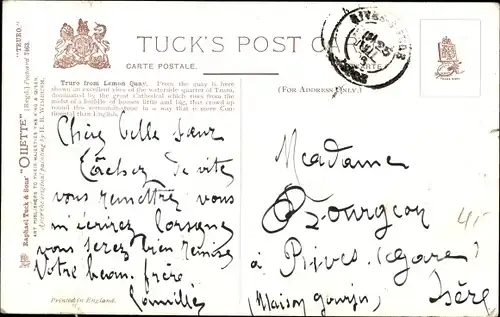 TUCK'S POST CA
CARTE POSTALE.
(FOR ADDRESS ONLY.)
Truro from Lemon Quay. From the quay is here
shown an excellent view of the waterside quarter of Truro,
dominated by the great Cathedral which rises from the
midst of a huddle of houses little and big, that crowd up
round this in a way that is more Con-
tinental than English.
Chère belle sœur
Tâchez de vite
vous remettre, vous
m'écrirez lorsque
vous serez bien remise
Votre beau-frère
Madame
Bourgeon
à Rives (gare)
(Maison gourjon) Isère
4,-
Printed in England.
Raphael Tuck & Sons' "OILETTE" (Regd.) Postcard 7863. "TRURO."
ART PUBLISHERS TO THEIR MAJESTIES THE KING & QUEEN.
After the original painting by H. B. WIMBUSH.